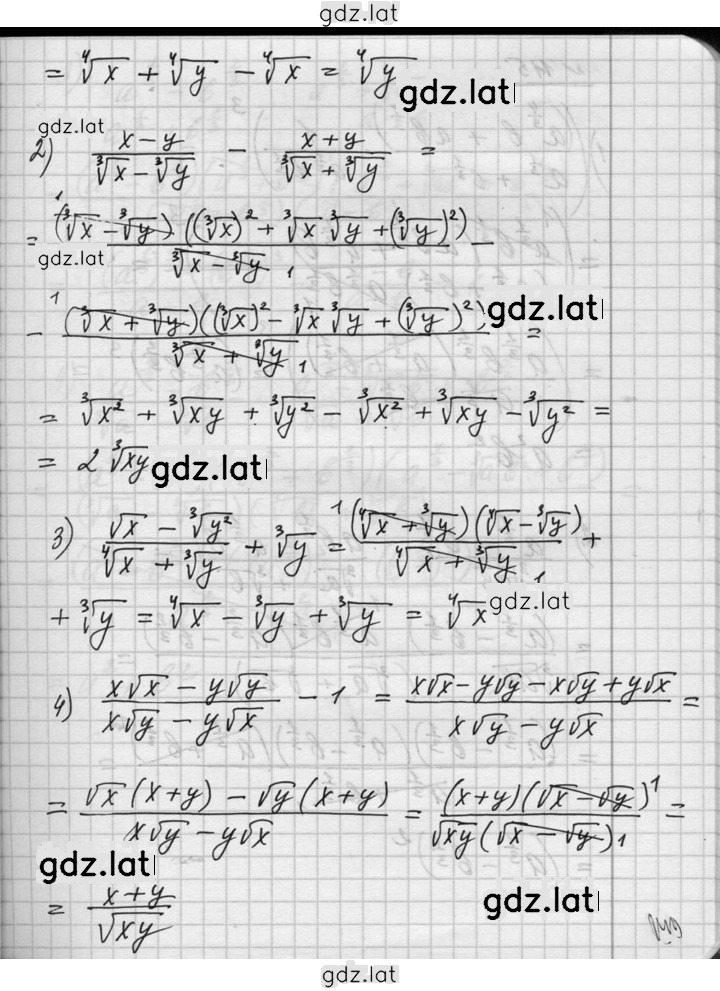 gdz.lat
= ⁴√x + ⁴√y − ⁴√x = ⁴√y
gdz.lat
gdz.lat
2) (x − y)/(³√x − ³√y) − (x + y)/(³√x + ³√y) =
= (³√x − ³√y)¹ ((³√x)² + ³√x ³√y + (³√y)²)/(³√x − ³√y) 1 −
gdz.lat
− 1 (³√x + ³√y)((³√x)² − ³√x ³√y + (³√y)²)/(³√x + ³√y) 1 =
gdz.lat
= ³√x² + ³√xy + ³√y² − ³√x² + ³√xy − ³√y² =
= 2 ³√xy
gdz.lat
3) (√x − ³√y²)/(⁴√x + ³√y) + ³√y = 1 (⁴√x + ³√y)(⁴√x − ³√y)/(⁴√x + ³√y) 1 +
+ ³√y = ⁴√x − ³√y + ³√y = ⁴√x
gdz.lat
4) (x√x − y√y)/(x√y − y√x) − 1 = (x√x − y√y − x√y + y√x)/(x√y − y√x) =
= (√x (x + y) − √y (x + y))/(x√y − y√x) = (x + y)(√x − √y)¹/(√xy (√x − √y) 1) =
gdz.lat
= (x + y)/√xy
gdz.lat
gdz.lat